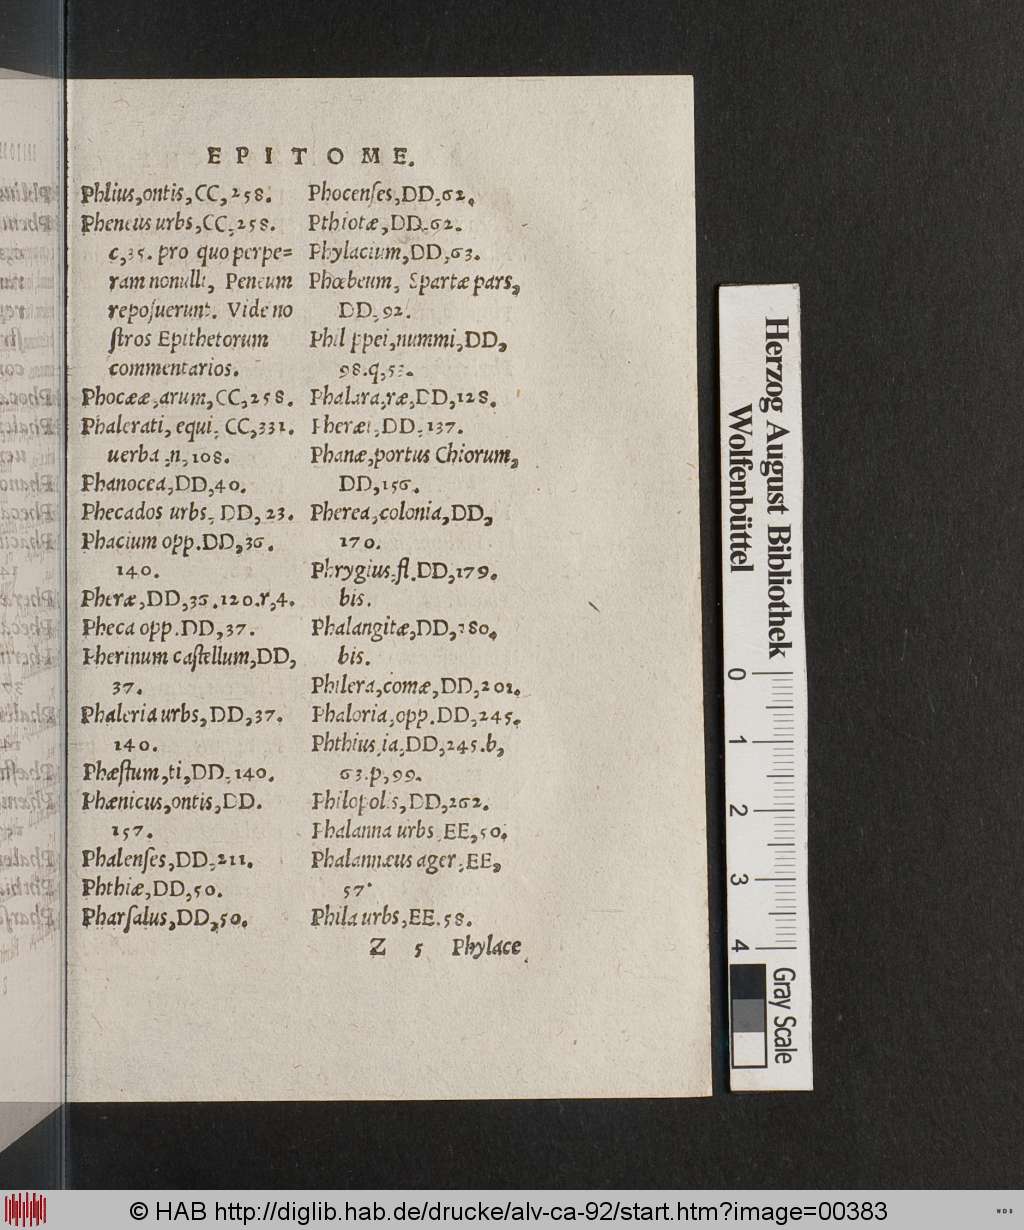 EPITOME.
Phlius,ontis,CC,258.
Pheneus urbs,CC,258.
c,35. pro quo perpe=
ram nonulli, Peneum
reposuerunt. Vide no
stros Epithetorum
commentarios.
Phocææ,arum,CC,258.
Phalerati, equi, CC,331.
uerba ,n,108.
Phanocea,DD,40.
Phecados urbs, DD,23.
Phacium opp.DD,36.
140.
Pheræ,DD,36.120.r,4.
Pheca opp.DD,37.
Pherinum castellum,DD,
37.
Phaleria urbs,DD,37.
140.
Phæstum,ti,DD,140.
Phænicus,ontis,DD.
157.
Phalenses,DD,211.
Phthiæ,DD,50.
Pharsalus,DD,50.
Phocenses,DD,62.
Pthiotæ,DD,62.
Phylacium,DD,63.
Phœbeum, Spartæ pars,
DD,92.
Philippei,nummi,DD,
98.q,53.
Phalara,ræ,DD,128.
Pheræi,DD,137.
Phanæ,portus Chiorum,
DD,156.
Pherea,colonia,DD,
170.
Phrygius,fl.DD,179.
bis.
Phalangitæ,DD,180.
bis.
Philera,comæ,DD,201.
Phaloria,opp.DD,245.
Phthius,ia,DD,245.b,
63.p,99.
Philopolis,DD,262.
Phalanna urbs,EE,50.
Phalannæus ager,EE,
57.
Phila urbs,EE.58.
Z 5 Phylace
Herzog August Bibliothek
Wolfenbüttel
0 1 2 3 4
Gray Scale
© HAB http://diglib.hab.de/drucke/alv-ca-92/start.htm?image=00383